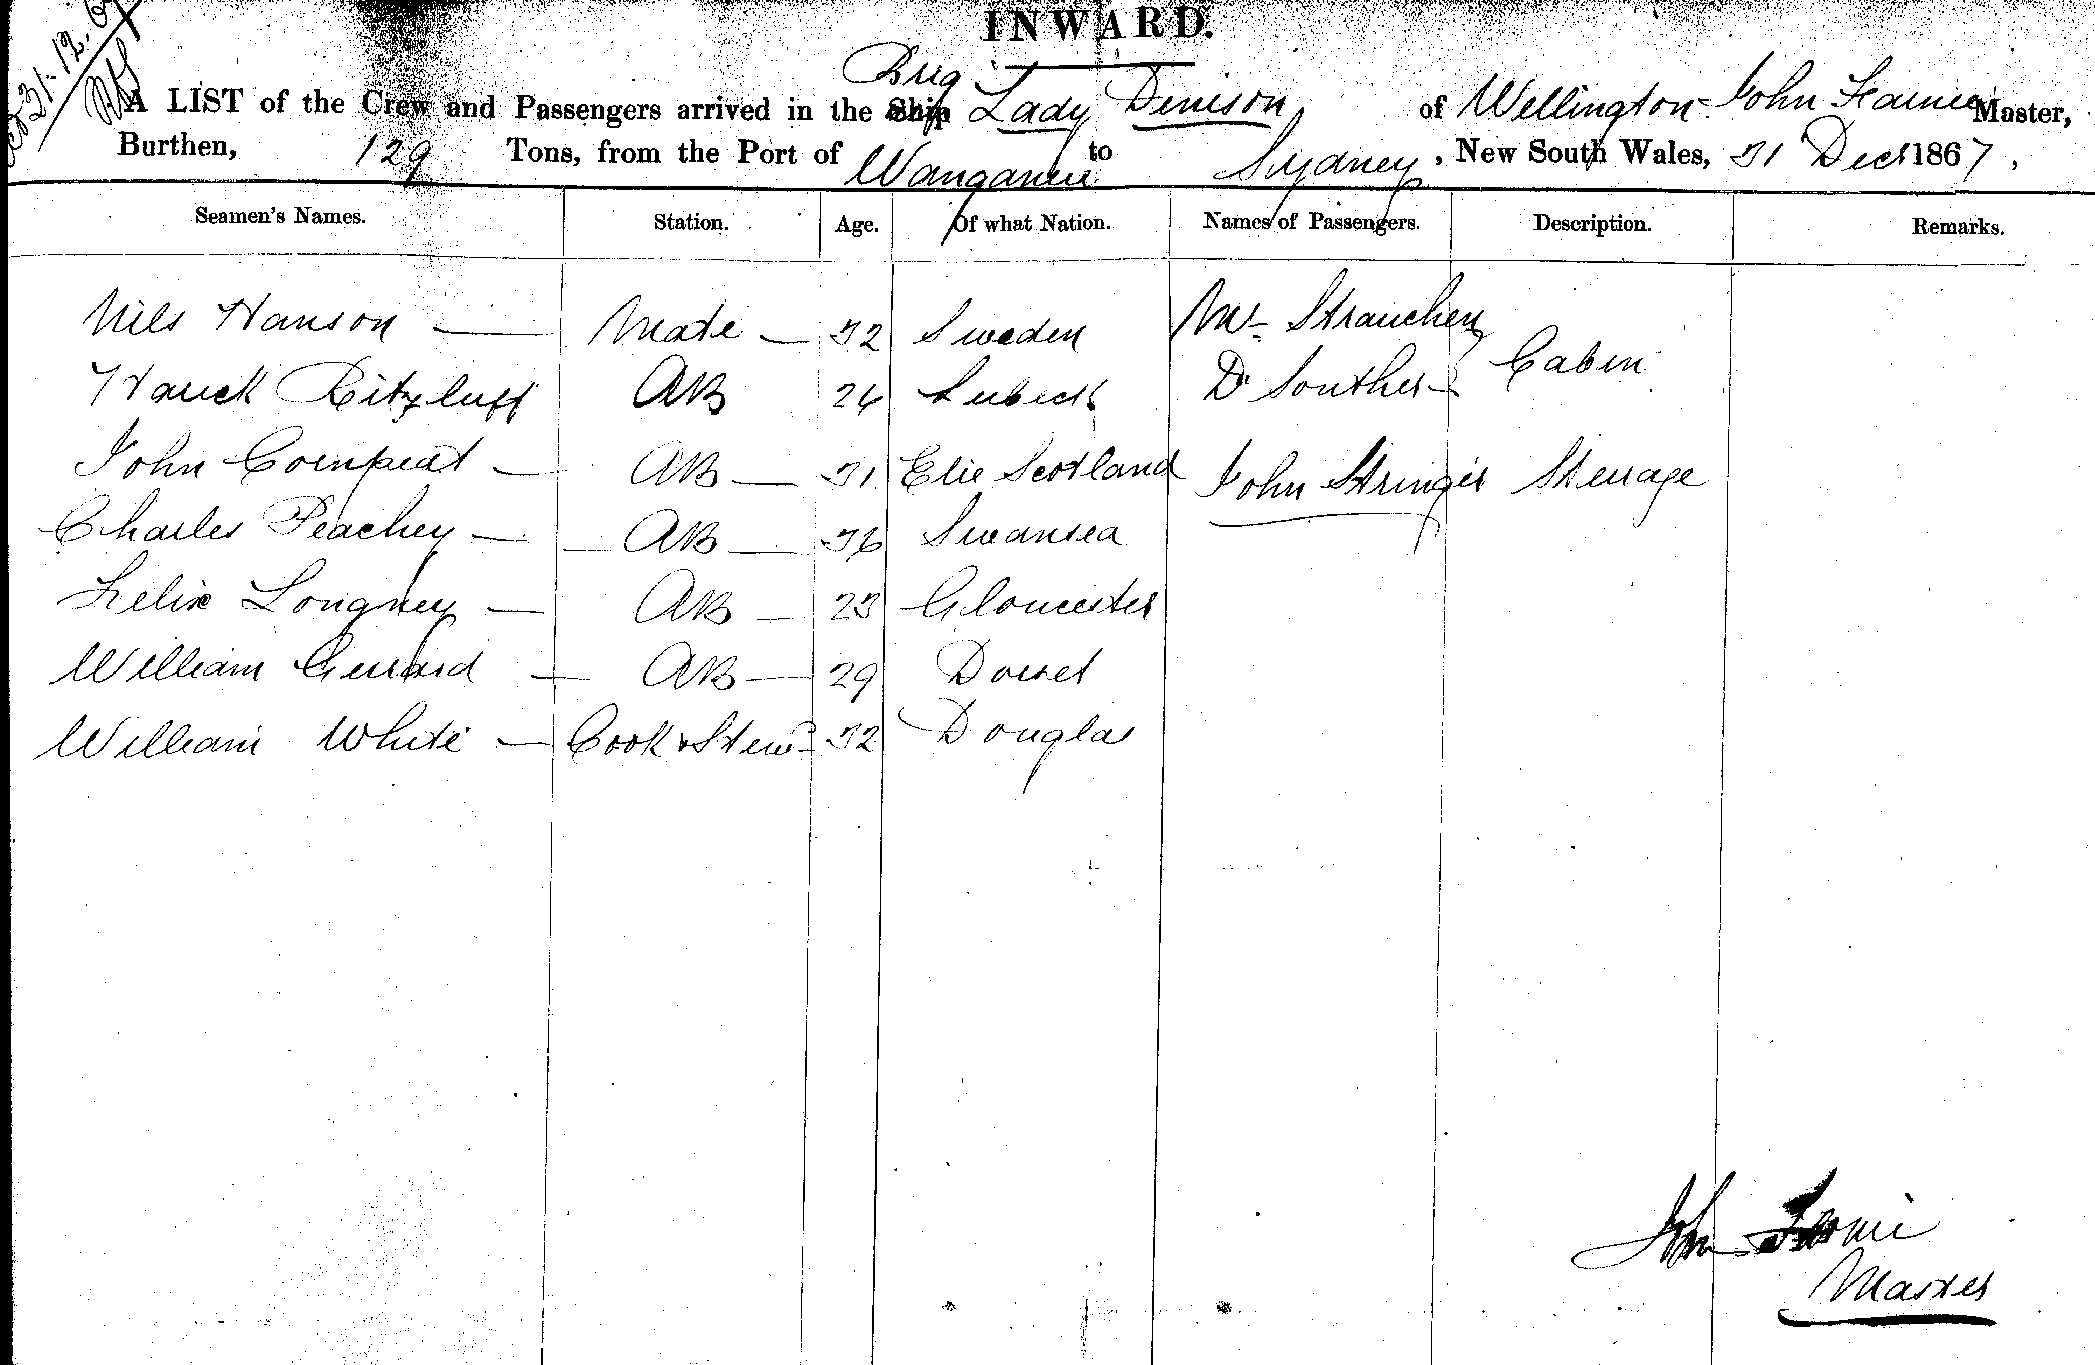 31.12.67
INWARD.
Brig
A LIST of the Crew and Passengers arrived in the Ship Lady Denison of Wellington John Master,
Burthen, 129 Tons, from the Port of Wanganui to Sydney, New South Wales, 31 Decr 1867.
Seamen's Names. Station. Age. Of what Nation. Names of Passengers. Description. Remarks.
Nils Hanson — Mate — 32 Sweden Mr Strauchen
Cabin
AB 24 Lubeck Dr Souther
John — AB — 31 Elie Scotland John Stringer Sterrage
Charles Peachey — AB — 36 Swansea
Felix Longney — AB — 23 Gloucester
William Gerrard — AB — 29 Dorset
William White — Cook & Stewd 32 Douglas
John
Master